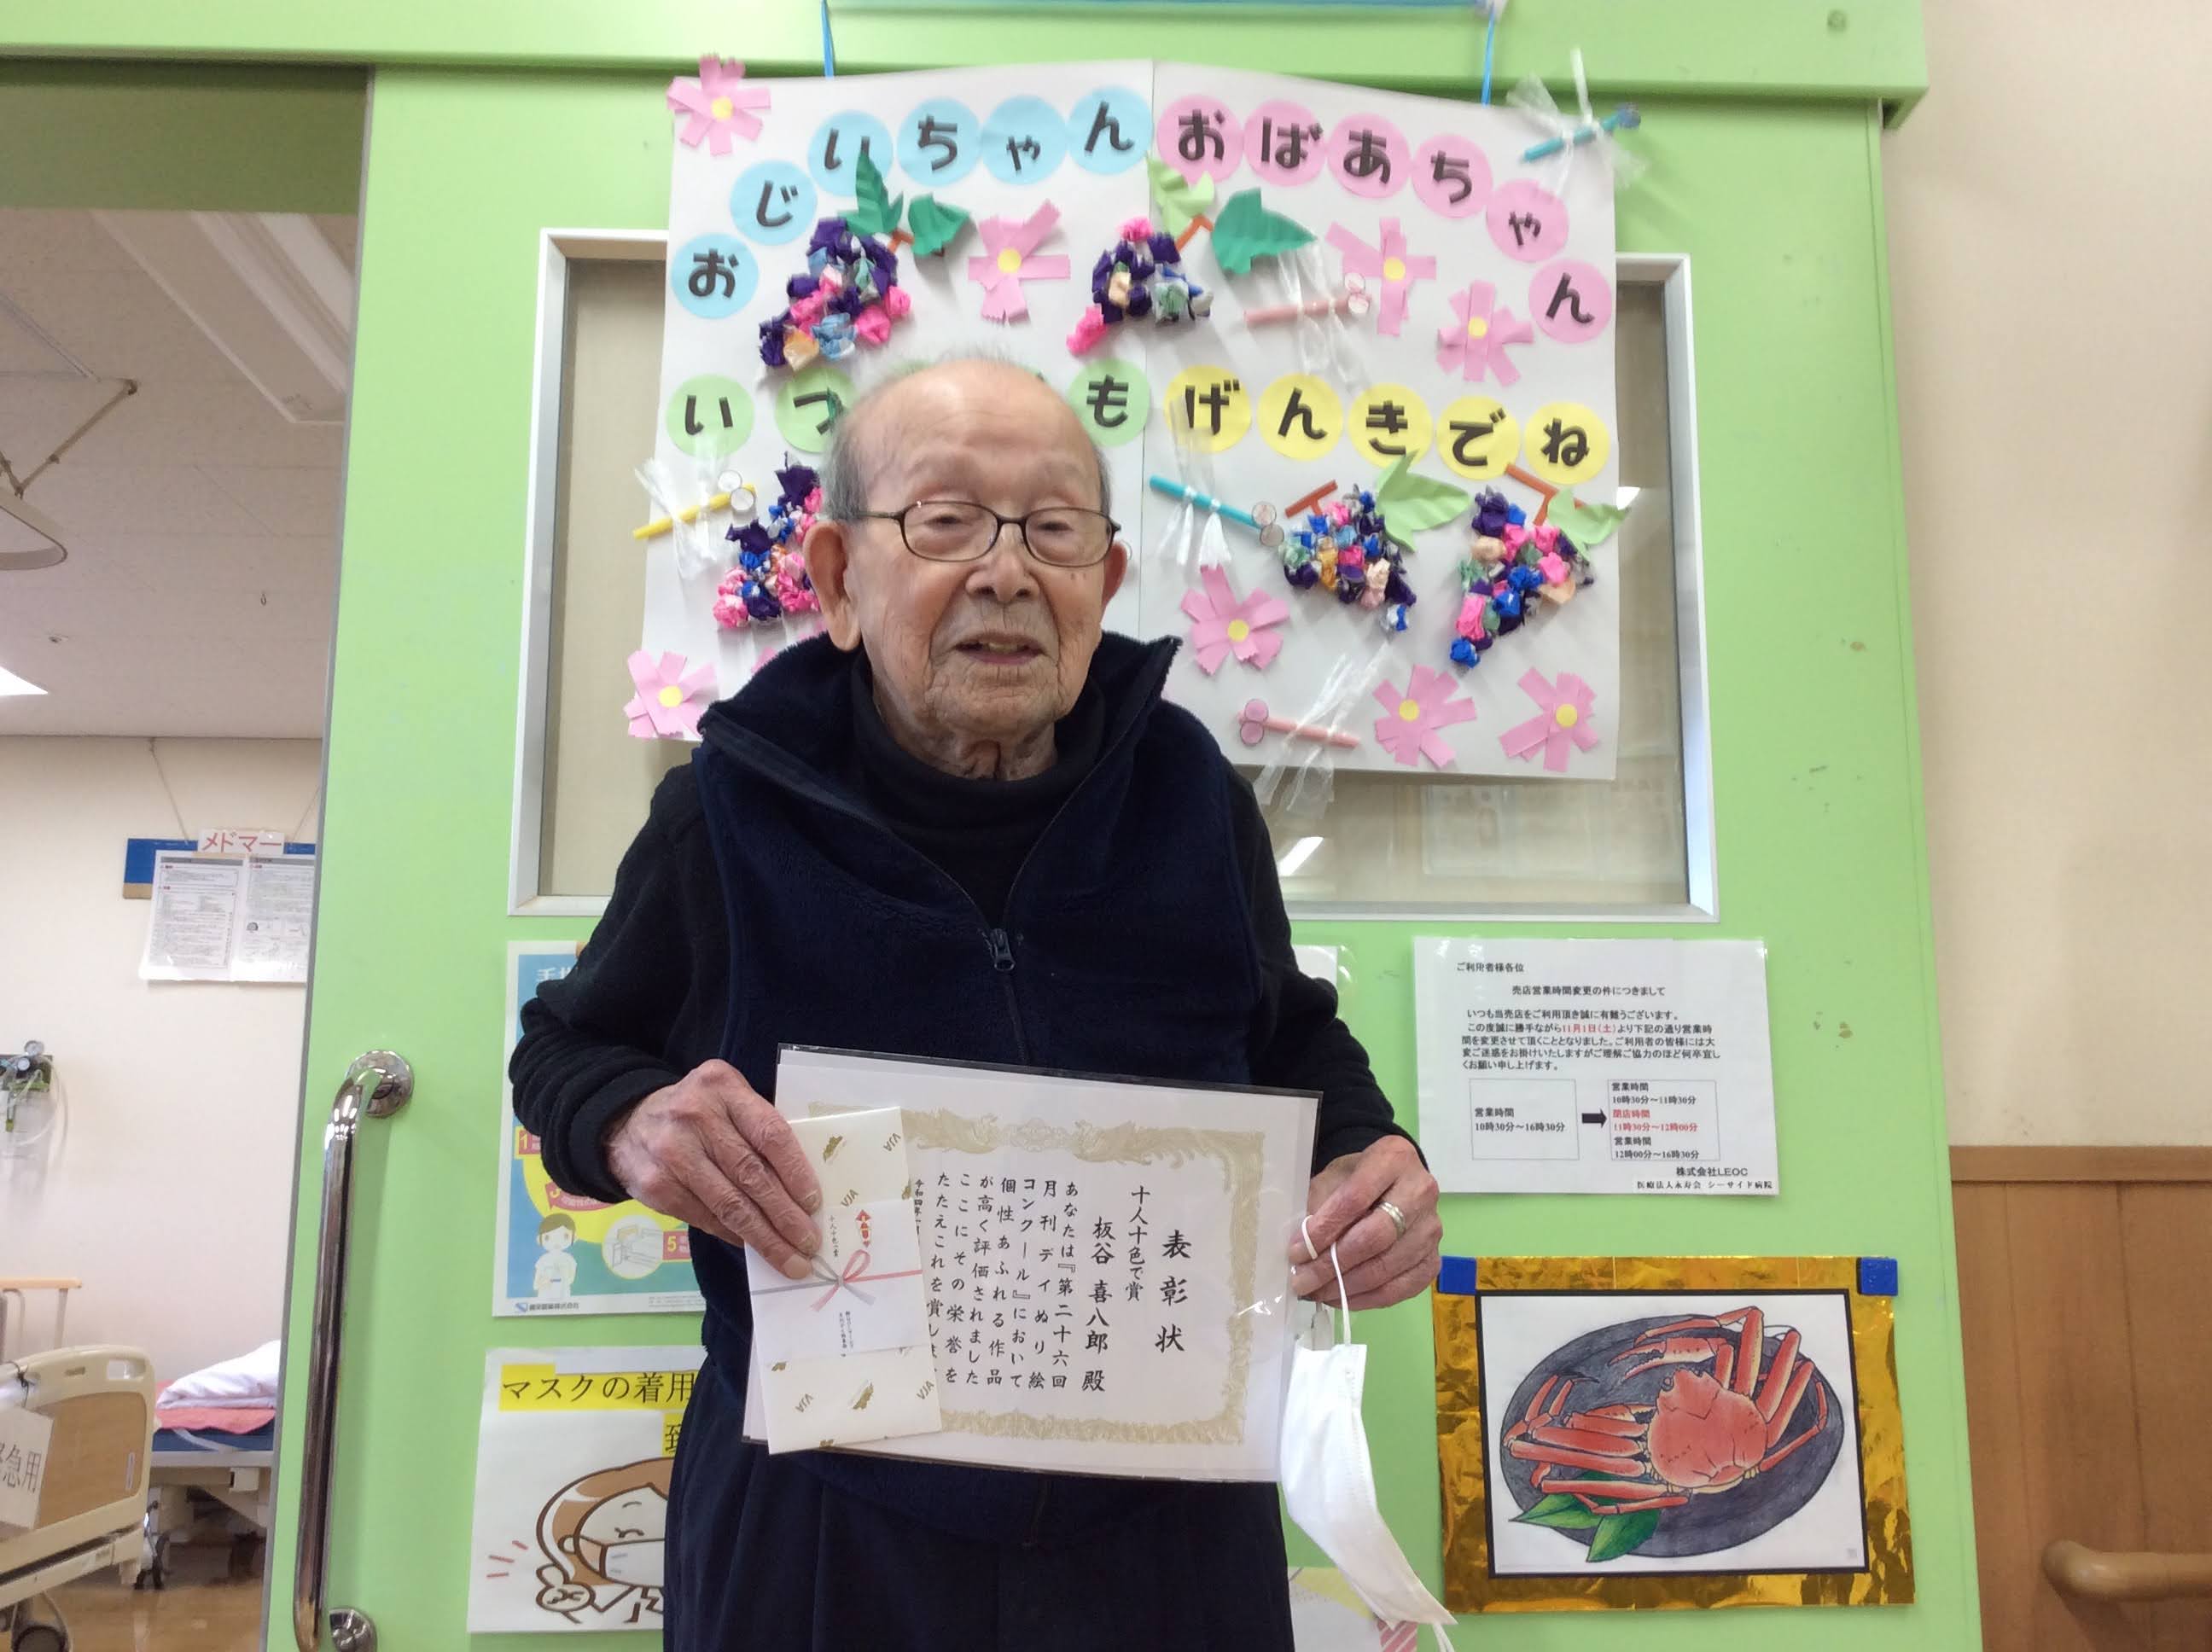 おじいちゃんおばあちゃん
いつ
もげんきでね
メドマー
ご利用者様各位
売店営業時間変更の件につきまして
いつも当売店をご利用頂き誠に有難うございます。
この度誠に勝手ながら11月1日(土)より下記の通り営業時
間を変更させて頂くこととなりました。ご利用者の皆様には大
変ご迷惑をお掛けいたしますがご理解ご協力のほど何卒宜し
くお願い申し上げます。
営業時間
10時30分〜16時30分
営業時間
10時30分〜11時30分
閉店時間
11時30分〜12時00分
営業時間
12時00分〜16時30分
株式会社LEOC
医療法人永寿会 シーサイド病院
表彰状
十人十色で賞
板谷 喜八郎 殿
あなたは『第二十六回
月刊デイぬり絵
コンクール』において
個性あふれる作品
が高く評価されました
ここにその栄誉を
たたえこれを賞しま
令和四年
十人十色で賞
VJA
VJA
VJA
VJA
マスクの着用
急用
1
5